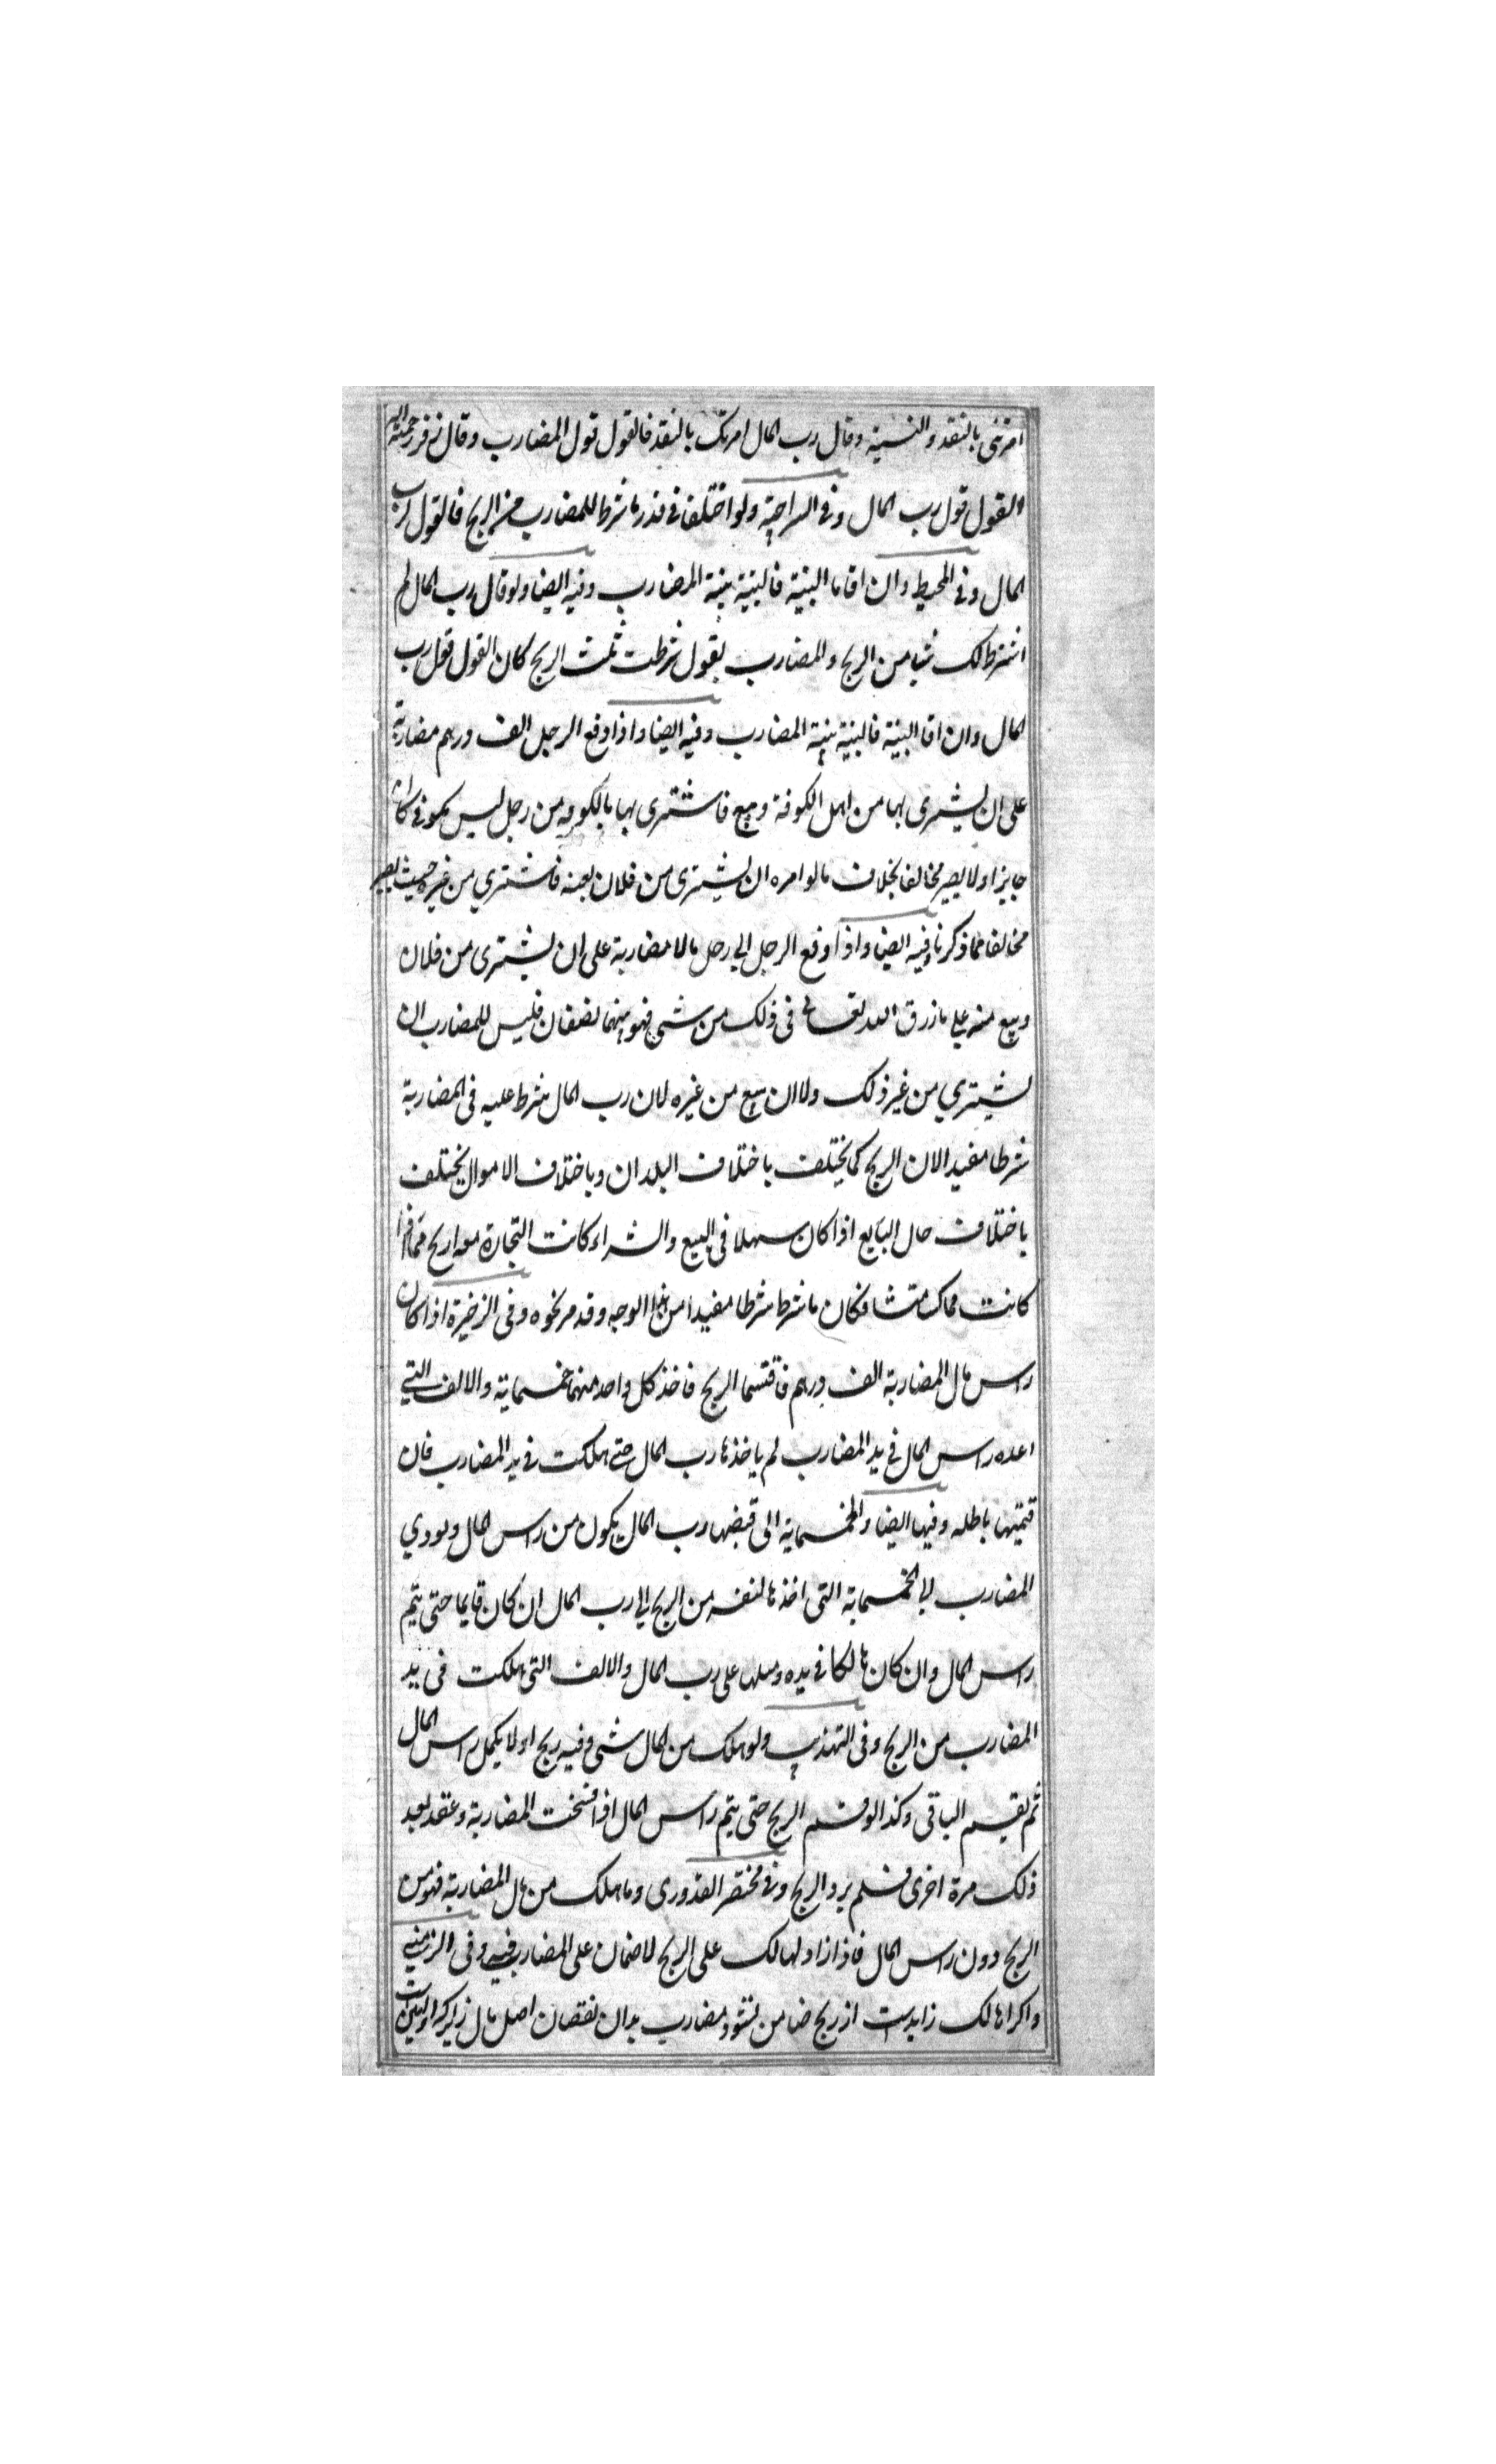 امرتنی بالنقد والنسیة وقال رب المال امرتک بالنقد فالقول قول المضارب وقال زفر رحمة الله
القول قول رب المال وفی السراجیة ولو اختلفا فی قدر ما شرط للمضارب من الربح فالقول لرب
المال وفی المحیط وان اقاما البینة فالبینة بینة المضارب وفیه ایضا ولو قال رب المال لم
اشترط لک شیا من الربح والمضارب یقول شرطت ثلث الربح کان القول قول رب
المال وان اقا البینة فالبینة بینة المضارب وفیه ایضا واذا دفع الرجل الف درهم مضاربة
علی ان یشتری بها من اهل الکوفة ویبیع فاشتری بها بالکوفه من رجل لیس بکوفی کان
جایزا ولا یصیر مخالفا بخلاف ما لو امره ان یشتری من فلان بعینه فاشتری من غیره حیث یصیر
مخالفا مما ذکرنا وفیه ایضا واذا دفع الرجل الی رجل مالا مضاربة علی ان یشتری من فلان
ویبیع منه علی ما رزق الله تعالی فی ذلک من شی فهو بینهما نصفان فلیس للمضارب ان
یشتری من غیر ذلک ولا ان یبیع من غیره لان رب المال شرط علیه فی المضاربة
شرطا مفیدا لان الربح کما یختلف باختلاف البلدان وباختلاف الاموال یختلف
باختلاف حال البایع اذا کان سهلا فی البیع والشراء کانت التجارة معه اربح مما اذا
کانت فکان ما شرط شرطا مفیدا من هذا الوجه وقد مر نحوه وفی الزخیرة اذا کان
راس مال المضاربة الف درهم فاقتسما الربح فاخذ کل واحد منهما خمسمایة والالف التی
اعده راس المال فی ید المضارب لم یاخذها رب المال حتی هلکت فی ید المضارب فان
قسمتها باطله وفیها ایضا والخمسمایة التی قبضها رب المال یکون من راس المال ویودی
المضارب الخمسمایة التی اخذها لنفسه من الربح الی رب المال ان کان قایما حتی یتم
راس المال وان کان هالکا فی یده ومثلها علی رب المال والالف التی هلکت فی ید
المضارب من الربح وفی التهذیب ولو هلک من المال شی وفیه ربح اولا یکمل راس المال
ثم یقسم الباقی وکذا لو قسم الربح حتی یتم راس المال اذا فسخت المضاربة وعقد بعد
ذلک مرة اخری فسلم یرد الربح وفی مختصر القدوری وما هلک من مال المضاربة فهو من
الربح دون راس المال فاذا زاد الهالک علی الربح لا ضمان علی المضارب فیه وفی الزینیے
واکر هالک زاید است از ربح ضامن نشود مضارب بدان نقصان اصل مال زیراکه او امین است